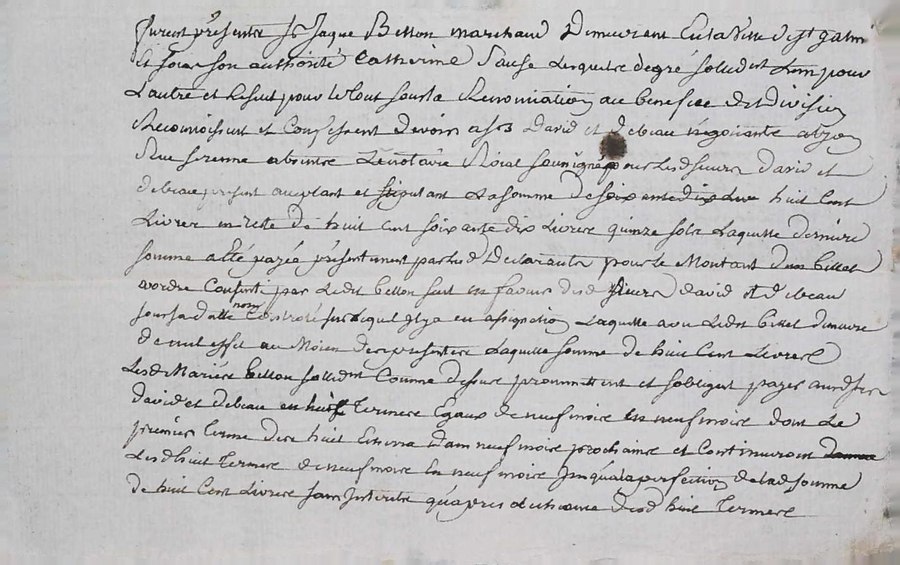 furent présentre Sr Jaque Bellon marchand Demeurant En la Ville de St galmi
et sous son authorité Catherine Lesquelre de gré sollid.nt L'un pour
L'autre et Le seul pour le tout sous la Renontiation au benefice De division
Reconoissent et Confessent Devoir a Srs David et Debeau negotiants a Lyon
Rue absentre Le notaire Roial soussigné pour Lesd sieurs David et
debeau present aceptant et stipulant La somme De huit Cent
Livres en reste de huit Cent soixante dix Livres quinze sols Laquelle derniere
somme a été payée présentement par lesd Declarants pour le Montant D'un billet
a ordre Consenti par Ledit bellon fait en faveur desd sieurs david et debeau
sous sa datte non Controlé sur Lequel il y a eu assignation Laquelle avec Ledit billet Demeure
De nul effet au Moien des presentere Laquelle somme De huit Cent Livrere
Lesd Mariére bellon sollid.nt Comme dessus promettent et s'obligent payer auxd Srs
david et debeau en huit Termere Egaux de neuf moire en neuf moire dont Le
premier terme dere huit Echerra dans neuf moire prochaire et Continueront
Lesd huit Termere de neuf moire En neuf moire Jusqu'a la perfection de lad somme
de huit Cent Livrere sans Interetre qu'apres desd huit Termere